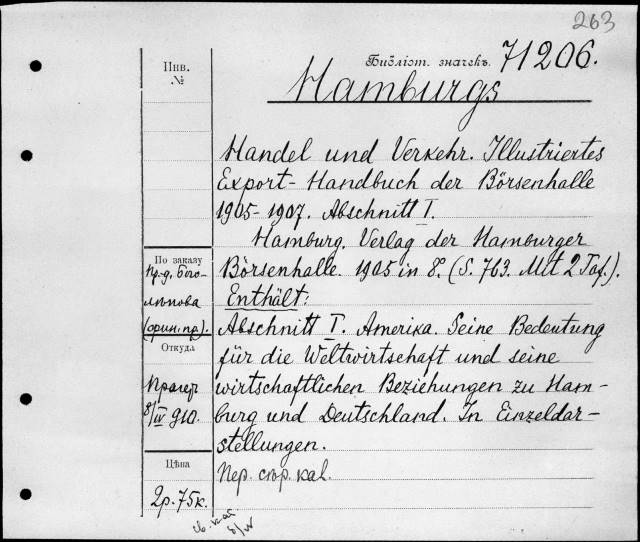 263
Библіот. значекъ. 71206.
Инв.
№
Hamburgs
Handel und Verkehr. Illustriertes
Export-Handbuch der Börsenhalle
1905-1907. Abschnitt I.
Hamburg. Verlag der Hamburger
Börsenhalle. 1905 in 8. (S. 763. Mit 2 Taf.).
Enthält:
Abschnitt I. Amerika. Seine Bedeutung
für die Weltwirtschaft und seine
wirtschaftlichen Beziehungen zu Ham-
burg und Deutschland. In Einzeldar-
stellungen.
Пер.
По заказу
Пр-д. Бого-
лѣпова
Откуда
Прагер
8/IV 910.
Цѣна
2р. 75к.